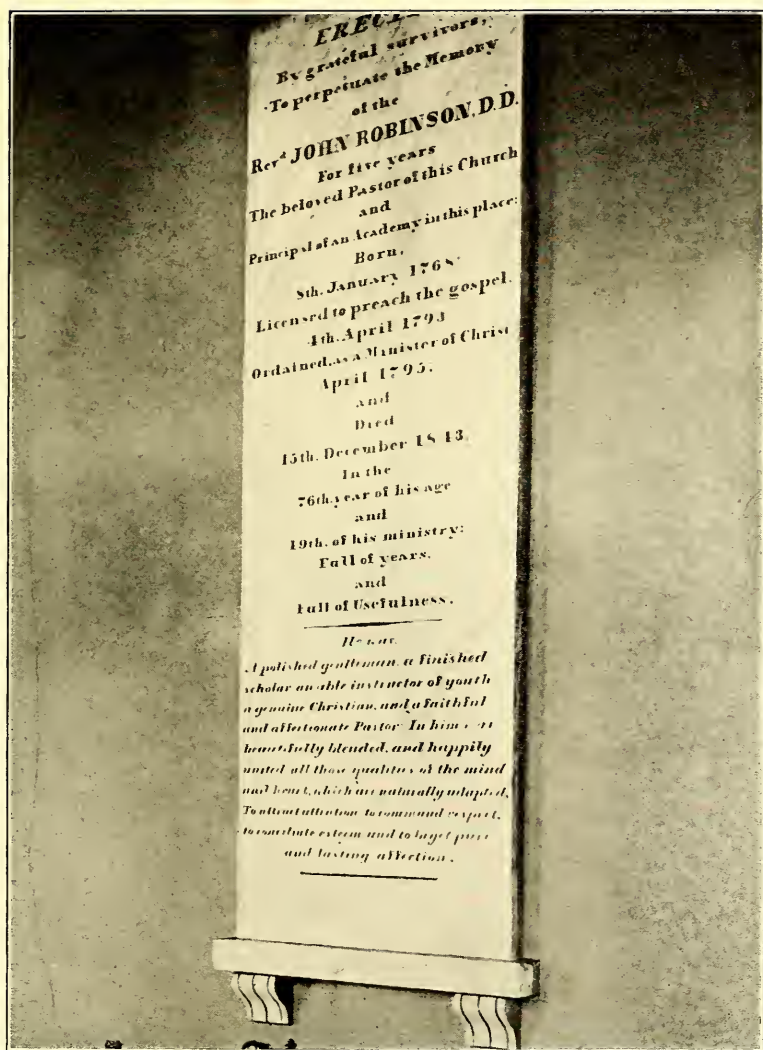 ERECTED
By grateful survivors,
To perpetuate the Memory
of the
Revd JOHN ROBINSON, D.D.
For five years
The beloved Pastor of this Church
and
Principal of an Academy in this place:
Born,
8th. January 1768.
Licensed to preach the gospel,
4th. April 1793
Ordained, as a Minister of Christ
April 1795.
and
Died
15th. December 1843.
In the
76th. year of his age
and
49th. of his ministry:
Full of years,
and
Full of Usefulness.
He was
A polished gentleman, a finished
scholar an able instructor of youth
a genuine Christian, and a faithful
and affectionate Pastor In him was
beautifully blended, and happily
united all those qualities of the mind
and heart, which are naturally adapted,
To attract attention to command respect,
to conciliate esteem and to beget pure
and lasting affection.